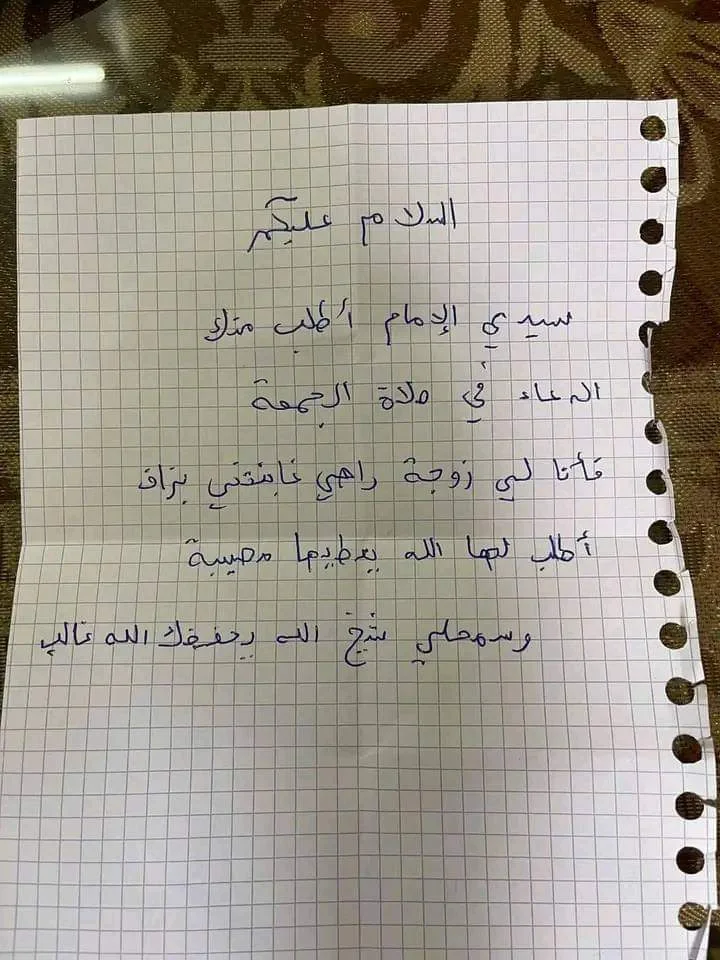 السلام عليكم
سيدي الإمام أطلب منك
الدعاء في صلاة الجمعة
فأنا لي زوجة راهي غابنتني بزاف
أطلب لها الله يعطيها مصيبة
وسمحلي شيخ الله يحفظك الله غالب